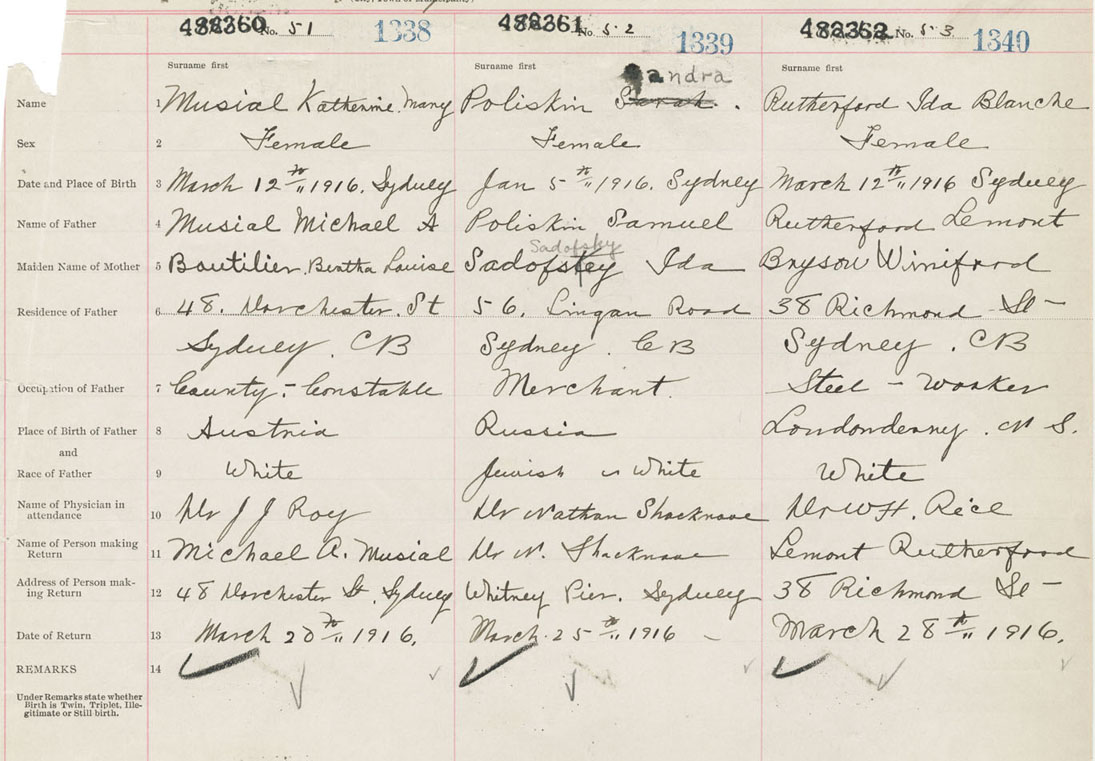 488360 No. 51 1338 488361 No. 52 1339 488362 No. 53 1340
Surname first Surname first Surname first
andra
Name 1 Musial Katherine Mary Poliskin Sarah. Rutherford Ida Blanche
Sex 2 Female Female Female
Date and Place of Birth 3 March 12th 1916. Sydney Jan 5th 1916. Sydney March 12th 1916 Sydney
Name of Father 4 Musial Michael A Poliskin Samuel Rutherford Lemont
Sadofsky
Maiden Name of Mother 5 Boutilier, Bertha Louise Sadofskey Ida Bryson Winifred
Residence of Father 6 48. Dorchester. St 56, Lingan Road 38 Richmond St
Sydney. CB Sydney. CB Sydney. CB
Occupation of Father 7 County - Constable Merchant. Steel - Worker
Place of Birth of Father 8 Austria Russia Londonderry. N S.
and
Race of Father 9 White Jewish White White
Name of Physician in
attendance 10 Dr J J Roy Dr Nathan Shacknove Dr W H. Rice
Name of Person making
Return 11 Michael A. Musial Dr N. Shacknove Lemont Rutherford
Address of Person mak-
ing Return 12 48 Dorchester St, Sydney Whitney Pier. Sydney 38 Richmond St
Date of Return 13 March 20th 1916. March 25th 1916 March 28th 1916.
REMARKS 14
Under Remarks state whether
Birth is Twin, Triplet, Ille-
gitimate or Still birth.